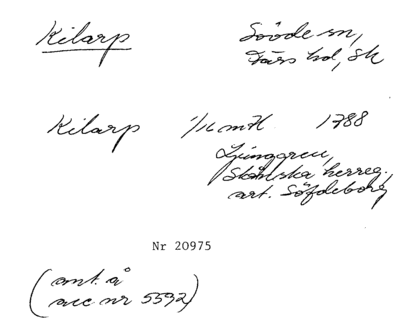 Kilarp Sövde sn,
Färs hd, Sk
Kilarp 1/16 mH 1788
Ljunggren,
Skånska herreg.
art. Söfdeborg
Nr 20975
(ant. å
acc nr 5592)